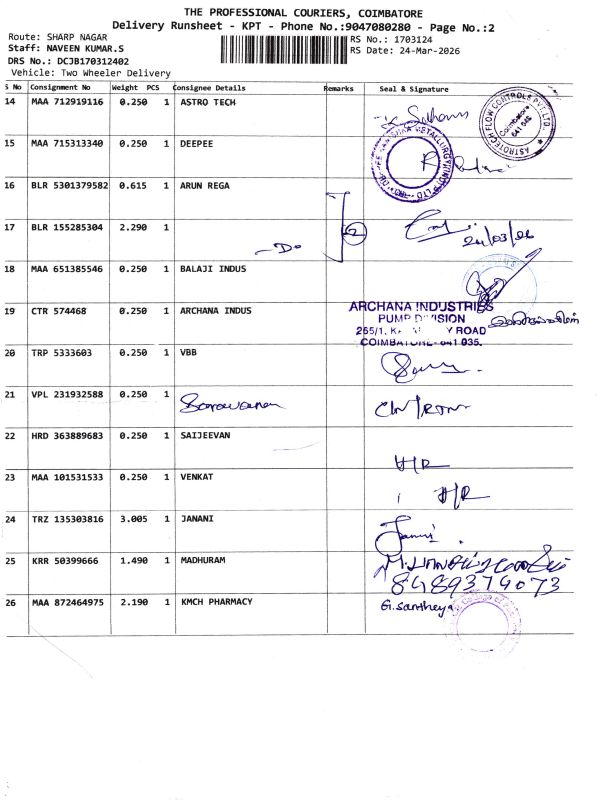 THE PROFESSIONAL COURIERS, COIMBATORE
Delivery Runsheet - KPT - Phone No.:9047080280 - Page No.:2
Route: SHARP NAGAR
RS No.: 1703124
Staff: NAVEEN KUMAR.S
RS Date: 24-Mar-2026
DRS No.: DCJB170312402
Vehicle: Two Wheeler Delivery
S No Consignment No Weight PCS Consignee Details Remarks Seal & Signature
14 MAA 712919116 0.250 1 ASTRO TECH
ASTROTECH FLOW CONTROLS PVT. LTD.
Coimbatore 641 045
15 MAA 715313340 0.250 1 DEEPEE
16 BLR 5301379582 0.615 1 ARUN REGA
17 BLR 155285304 2.290 1
-Do 2
24/03/26
18 MAA 651385546 0.250 1 BALAJI INDUS
19 CTR 574468 0.250 1 ARCHANA INDUS
ARCHANA INDUSTRIES
PUMP DIVISION
265/1, ROAD
COIMBATORE - 641 035.
20 TRP 5333603 0.250 1 VBB
21 VPL 231932588 0.250 1 Saravanan
22 HRD 363889683 0.250 1 SAIJEEVAN
H/R
23 MAA 101531533 0.250 1 VENKAT
H/R
24 TRZ 135303816 3.005 1 JANANI
25 KRR 50399666 1.490 1 MADHURAM
8489374073
26 MAA 872464975 2.190 1 KMCH PHARMACY G. Santheya